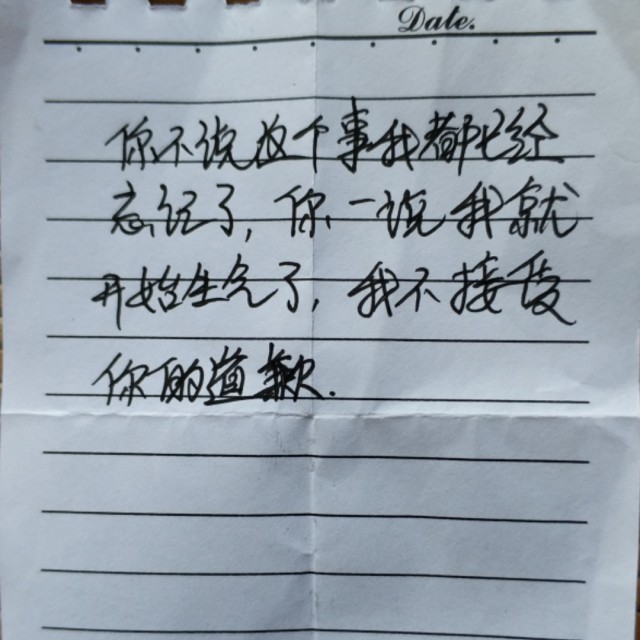 Date.
你不说这个事我都已经
忘记了，你一说我就
开始生气了，我不接受
你的道歉.